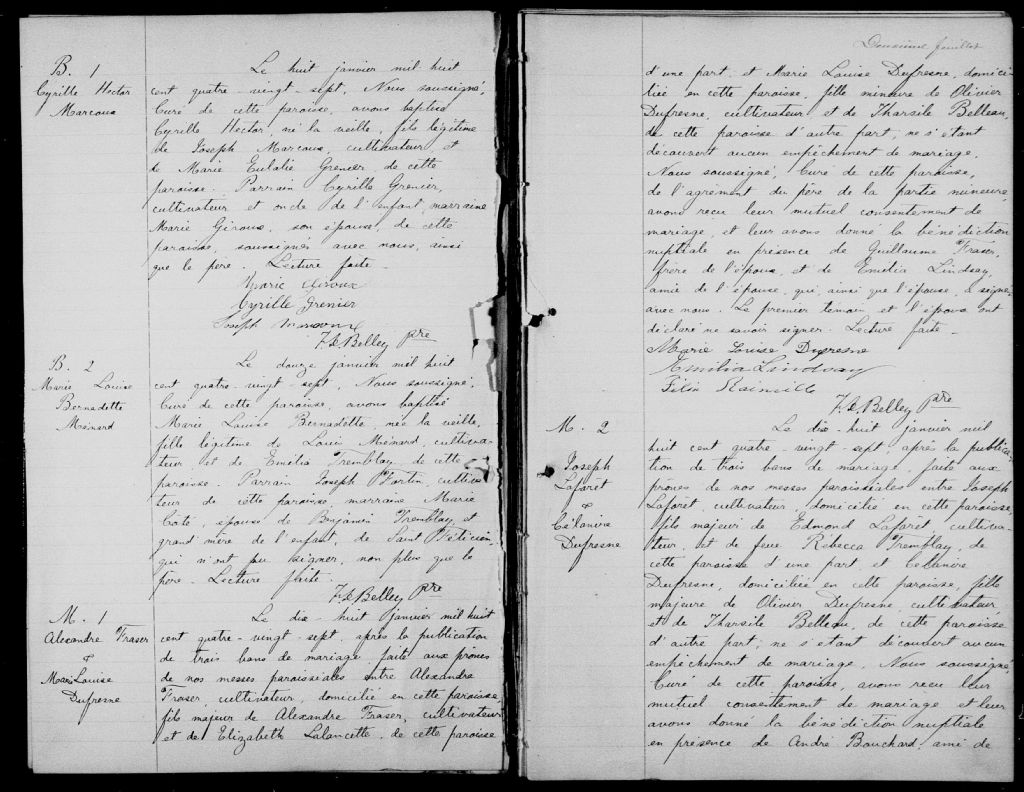 B. 1
Cyrille Hector
Marcoux
Le huit janvier mil huit
cent quatre-vingt-sept, Nous soussigné,
Curé de cette paroisse, avons baptisé
Cyrille Hector, né la veille, fils légitime
de Joseph Marcoux, cultivateur et
de Marie Eulalie Grenier de cette
paroisse. Parrain Cyrille Grenier,
cultivateur et oncle de l'enfant, marraine
Marie Giroux, son épouse, de cette
paroisse, soussignés avec nous, ainsi
que le père. Lecture faite.
Marie Giroux
Cyrille Grenier
Joseph Marcoux
Belley ptre
B. 2
Marie Louise
Bernadette
Ménard
Le douze janvier mil huit
cent quatre-vingt-sept, Nous soussigné,
Curé de cette paroisse, avons baptisé
Marie Louise Bernadette, née la veille,
fille légitime de Louis Ménard, cultiva-
teur, et de Emilia Tremblay de cette
paroisse. Parrain Joseph Fortin, cultiva-
teur de cette paroisse, marraine Marie
Côté, épouse de Benjamin Tremblay, et
grand'mère de l'enfant, de Saint Félicien,
qui n'ont pu signer, non plus que le
père. Lecture faite.
Belley ptre
M. 1
Alexandre Fraser
&
Marie Louise
Dufresne
Le dix-huit janvier mil huit
cent quatre-vingt-sept, après la publication
de trois bans de mariage faite aux prônes
de nos messes paroissiales entre Alexandre
Fraser, cultivateur, domicilié en cette paroisse
fils majeur de Alexandre Fraser, cultivateur
et de Elizabeth Lalancette, de cette paroisse
Deuxième feuillet
d'une part, et Marie Louise Dufresne, domici-
liée en cette paroisse, fille mineure de Olivier
Dufresne, cultivateur et de Tharsile Belleau,
de cette paroisse d'autre part; ne s'étant
découvert aucun empêchement de mariage,
Nous soussigné, Curé de cette paroisse,
de l'agrément du père de la partie mineure,
avons reçu leur mutuel consentement de
mariage, et leur avons donné la bénédiction
nuptiale en présence de Guillaume Fraser,
frère de l'époux, et de Emilia Lindsay,
amie de l'épouse, qui, ainsi que l'épouse, a signé
avec nous. Le premier témoin et l'époux ont
déclaré ne savoir signer. Lecture faite.
Marie Louise Dufresne
Emilia Lindsay
Félix Rainville
Belley ptre
M. 2
Joseph
Laforêt
&
Célanire
Dufresne
Le dix-huit janvier mil
huit cent quatre-vingt-sept, après la publica-
tion de trois bans de mariage, faite aux
prônes de nos messes paroissiales entre Joseph
Laforêt, cultivateur, domicilié en cette paroisse,
fils majeur de Edmond Laforêt, cultiva-
teur, et de feue Rébecca Tremblay, de
cette paroisse d'une part et Célanire
Dufresne, domiciliée en cette paroisse, fille
majeure de Olivier Dufresne, cultivateur,
et de Tharsile Belleau, de cette paroisse
d'autre part; ne s'étant découvert aucun
empêchement de mariage, Nous soussigné,
Curé de cette paroisse, avons reçu leur
mutuel consentement de mariage et leur
avons donné la bénédiction nuptiale
en présence de André Bouchard, ami de